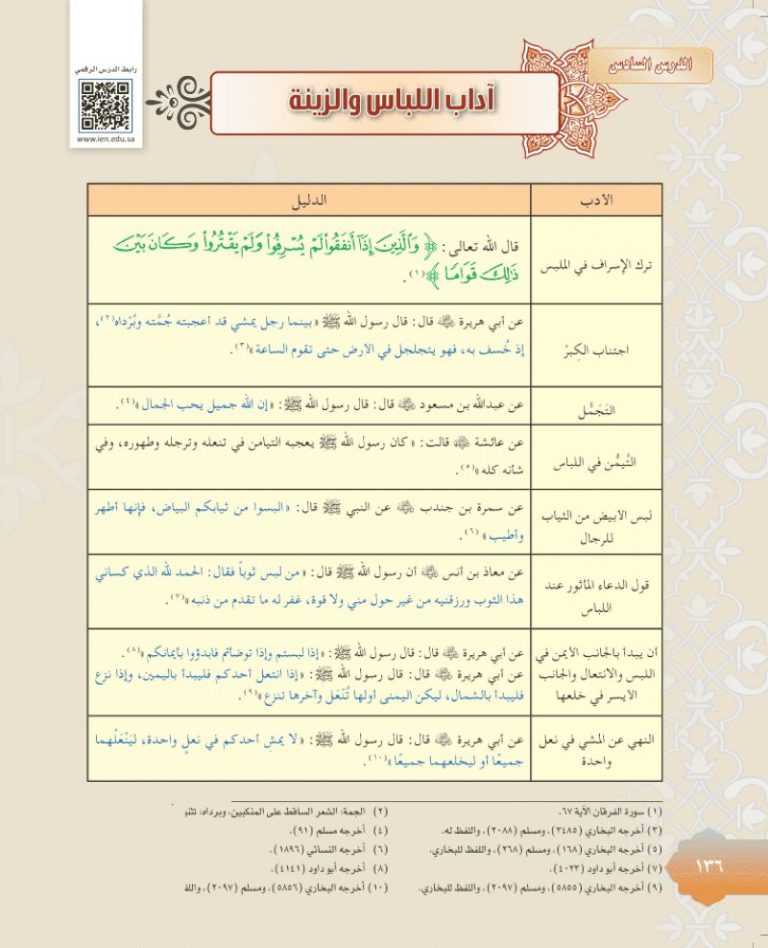 الدرس السادس
رابط الدرس الرقمي
www.ien.edu.sa
آداب اللباس والزينة
الأدب
الدليل
ترك الإسراف في الملبس
قال الله تعالى: ﴿ وَٱلَّذِينَ إِذَآ أَنفَقُوا۟ لَمْ يُسْرِفُوا۟ وَلَمْ يَقْتُرُوا۟ وَكَانَ بَيْنَ
ذَٰلِكَ قَوَامًا ﴾(١).
اجتناب الكِبرْ
عن أبي هريرة ﷺ قال: قال رسول الله ﷺ «بينما رجل يمشي قد أعجبته جُمَّته وبُرْداه(٢)،
إذ خُسف به، فهو يتجلجل في الأرض حتى تقوم الساعة»(٣).
التَجَمُّل
عن عبدالله بن مسعود قال: قال رسول الله ﷺ: «إن الله جميل يحب الجمال»(٤).
التُّيمُّن في اللباس
عن عائشة قالت: «كان رسول الله ﷺ يعجبه التيامن في تنعله وترجله وطهوره، وفي
شأنه كله»(٥).
لبس الأبيض من الثياب
للرجال
عن سمرة بن جندب عن النبي ﷺ قال: «البسوا من ثيابكم البياض، فإنها أطهر
وأطيب»(٦).
قول الدعاء المأثور عند
اللباس
عن معاذ بن أنس أن رسول الله ﷺ قال: «من لبس ثوباً فقال: الحمد لله الذي كساني
هذا الثوب ورزقنيه من غير حول مني ولا قوة، غفر له ما تقدم من ذنبه»(٧).
أن يبدأ بالجانب الأيمن في
اللبس والانتعال والجانب
الأيسر في خلعها
عن أبي هريرة قال: قال رسول الله ﷺ: «إذا لبستم وإذا توضأتم فابدؤوا بأيمانكم»(٨).
عن أبي هريرة قال: قال رسول الله ﷺ: «إذا انتعل أحدكم فليبدأ باليمين، وإذا نزع
فليبدأ بالشمال، ليكن اليمنى أولها تُنْعَل وآخرها تنزع»(٩).
النهي عن المشي في نعل
واحدة
عن أبي هريرة قال: قال رسول الله ﷺ: «لا يمشِ أحدكم في نعلٍ واحدة، ليَنْعَلْهما
جميعًا أو ليخلعهما جميعًا»(١٠).
(١) سورة الفرقان الآية ٦٧.
(٢) الجمة: الشعر الساقط على المنكبين، وبرداه: تثني
(٣) أخرجه البخاري (٣٤٨٥)، ومسلم (٢٠٨٨)، واللفظ له.
(٤) أخرجه مسلم (٩١).
(٥) أخرجه البخاري (١٦٨)، ومسلم (٢٦٨)، واللفظ للبخاري.
(٦) أخرجه النسائي (١٨٩٦).
(٧) أخرجه أبو داود (٤٠٢٣).
(٨) أخرجه أبو داود (٤١٤١).
(٩) أخرجه البخاري (٥٨٥٥)، ومسلم (٢٠٩٧)، واللفظ للبخاري.
(١٠) أخرجه البخاري (٥٨٥٦)، ومسلم (٢٠٩٧)، واللف
١٣٦